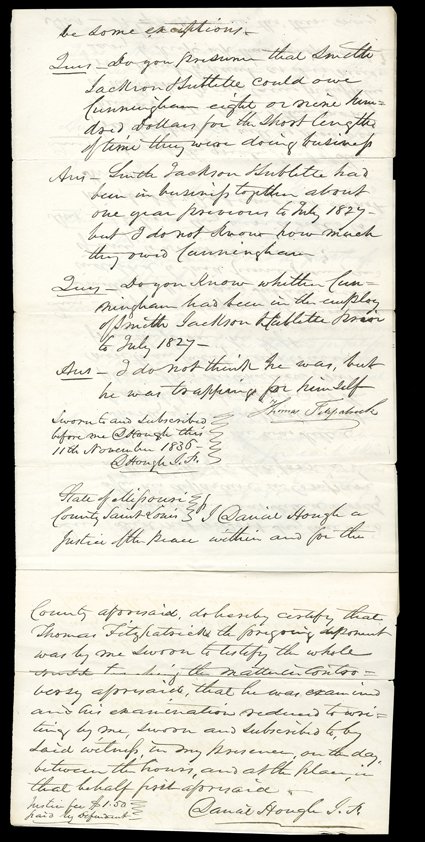 be some exceptions -
Ques - Do you presume that Smith
Jackson & Sublette could owe
Cunningham eight or nine hun-
dred Dollars for the short length
of time they were doing business
Ans - Smith Jackson & Sublette had
been in business together about
one year previous to July 1827 -
but I do not know how much
they owed Cunningham
Ques - Do you Know whether Cun-
ningham had been in the employ
of Smith Jackson & Sublette prior
to July 1827 -
Ans - I do not think he was, but
he was trapping for himself
Thomas Fitzpatrick
Sworn to and Subscribed
before me D Hough this
11th November 1836 -
D Hough J. P.
State of Missouri
County Saint Louis } I Daniel Hough a
Justice of the peace within and for the
County aforesaid, do hereby certify that
Thomas Fitzpatrick the foregoing deponent
was by me Sworn to testify the whole
truth touching the matter in contro-
versy aforesaid, that he was examined
and his examination reduced to wri-
ting by me, Sworn and subscribed to by
said witness, in my presence, on the day,
between the hours, and at the place, in
that behalf first aforesaid.
Justice fee $1.50
paid by Defendant
Daniel Hough J. P.